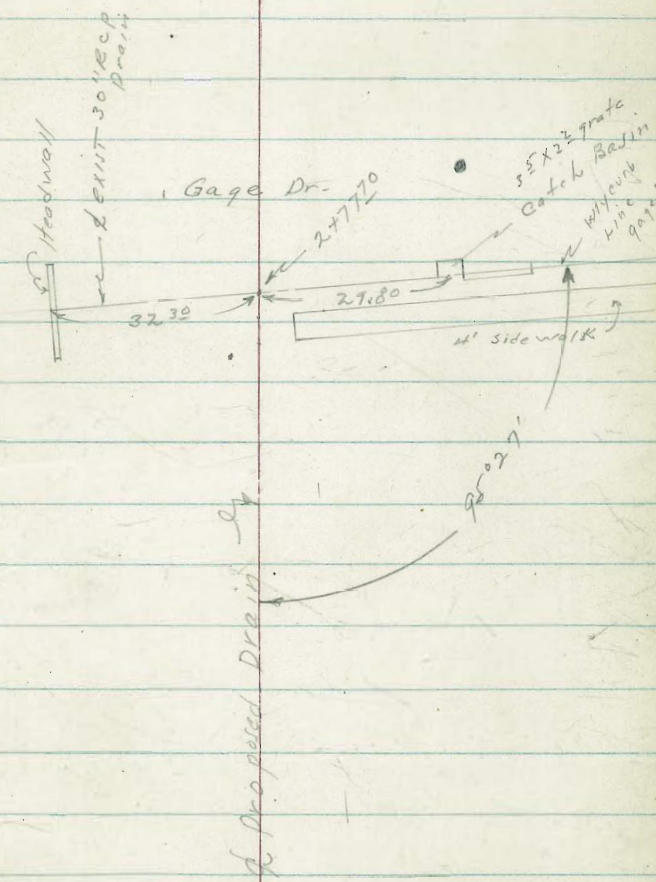 Headwall
℄ EXIST 30" RCP
Drain
Gage Dr.
2+77⁷⁰
3⁵ x 2² grate
Catch Basin
W'ly curb
Line
gage
32³⁰
29.80
4' sidewalk
95°27'
℄ Proposed Drain